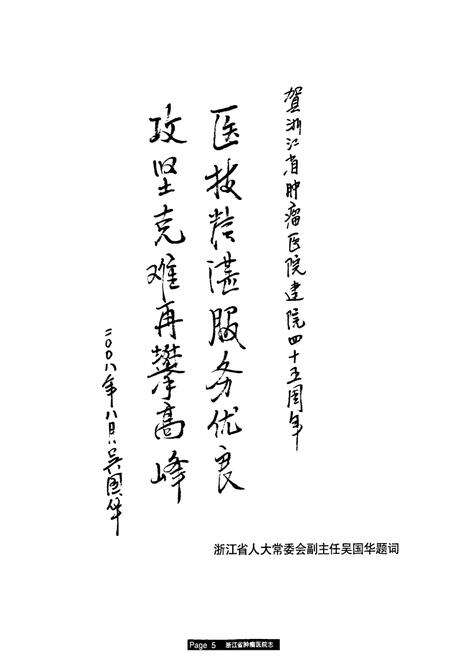 贺浙江省肿瘤医院建院四十五周年
医技精湛服务优良
攻坚克难再攀高峰
二〇〇八年八月 吴国华
浙江省人大常委会副主任吴国华题词
Page 5 浙江省肿瘤医院志